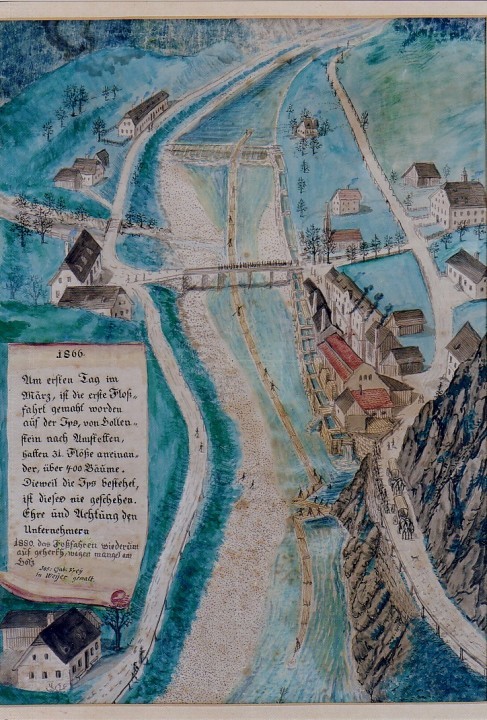 1866
Am ersten Tag im
März, ist die erste Floß-
fahrt gemaht worden
auf der Ips, von Hollen-
stein nach Amstetten,
hatten 31. Floße aneinan-
der, über 400 Bäume.
Dieweil die Ips bestehet,
ist dieses nie geschehen.
Ehre und Achtung den
Unternehmern
1880. das Floßfahren wiederum
auf geherth, wegen mangel am
Holz
in Weijer gemalt.